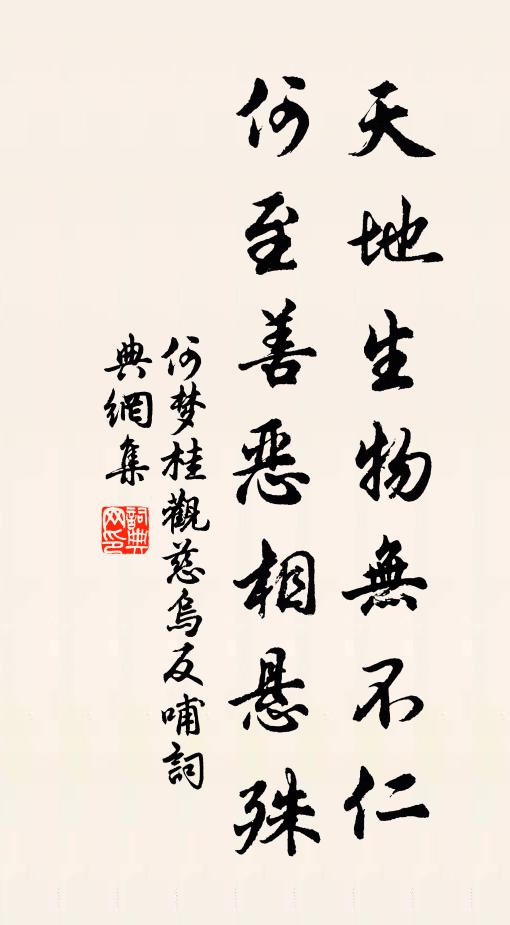 天地生物無不仁
何至善惡相悬殊
何梦桂觀慈烏反哺詞
典網集
詞典網印